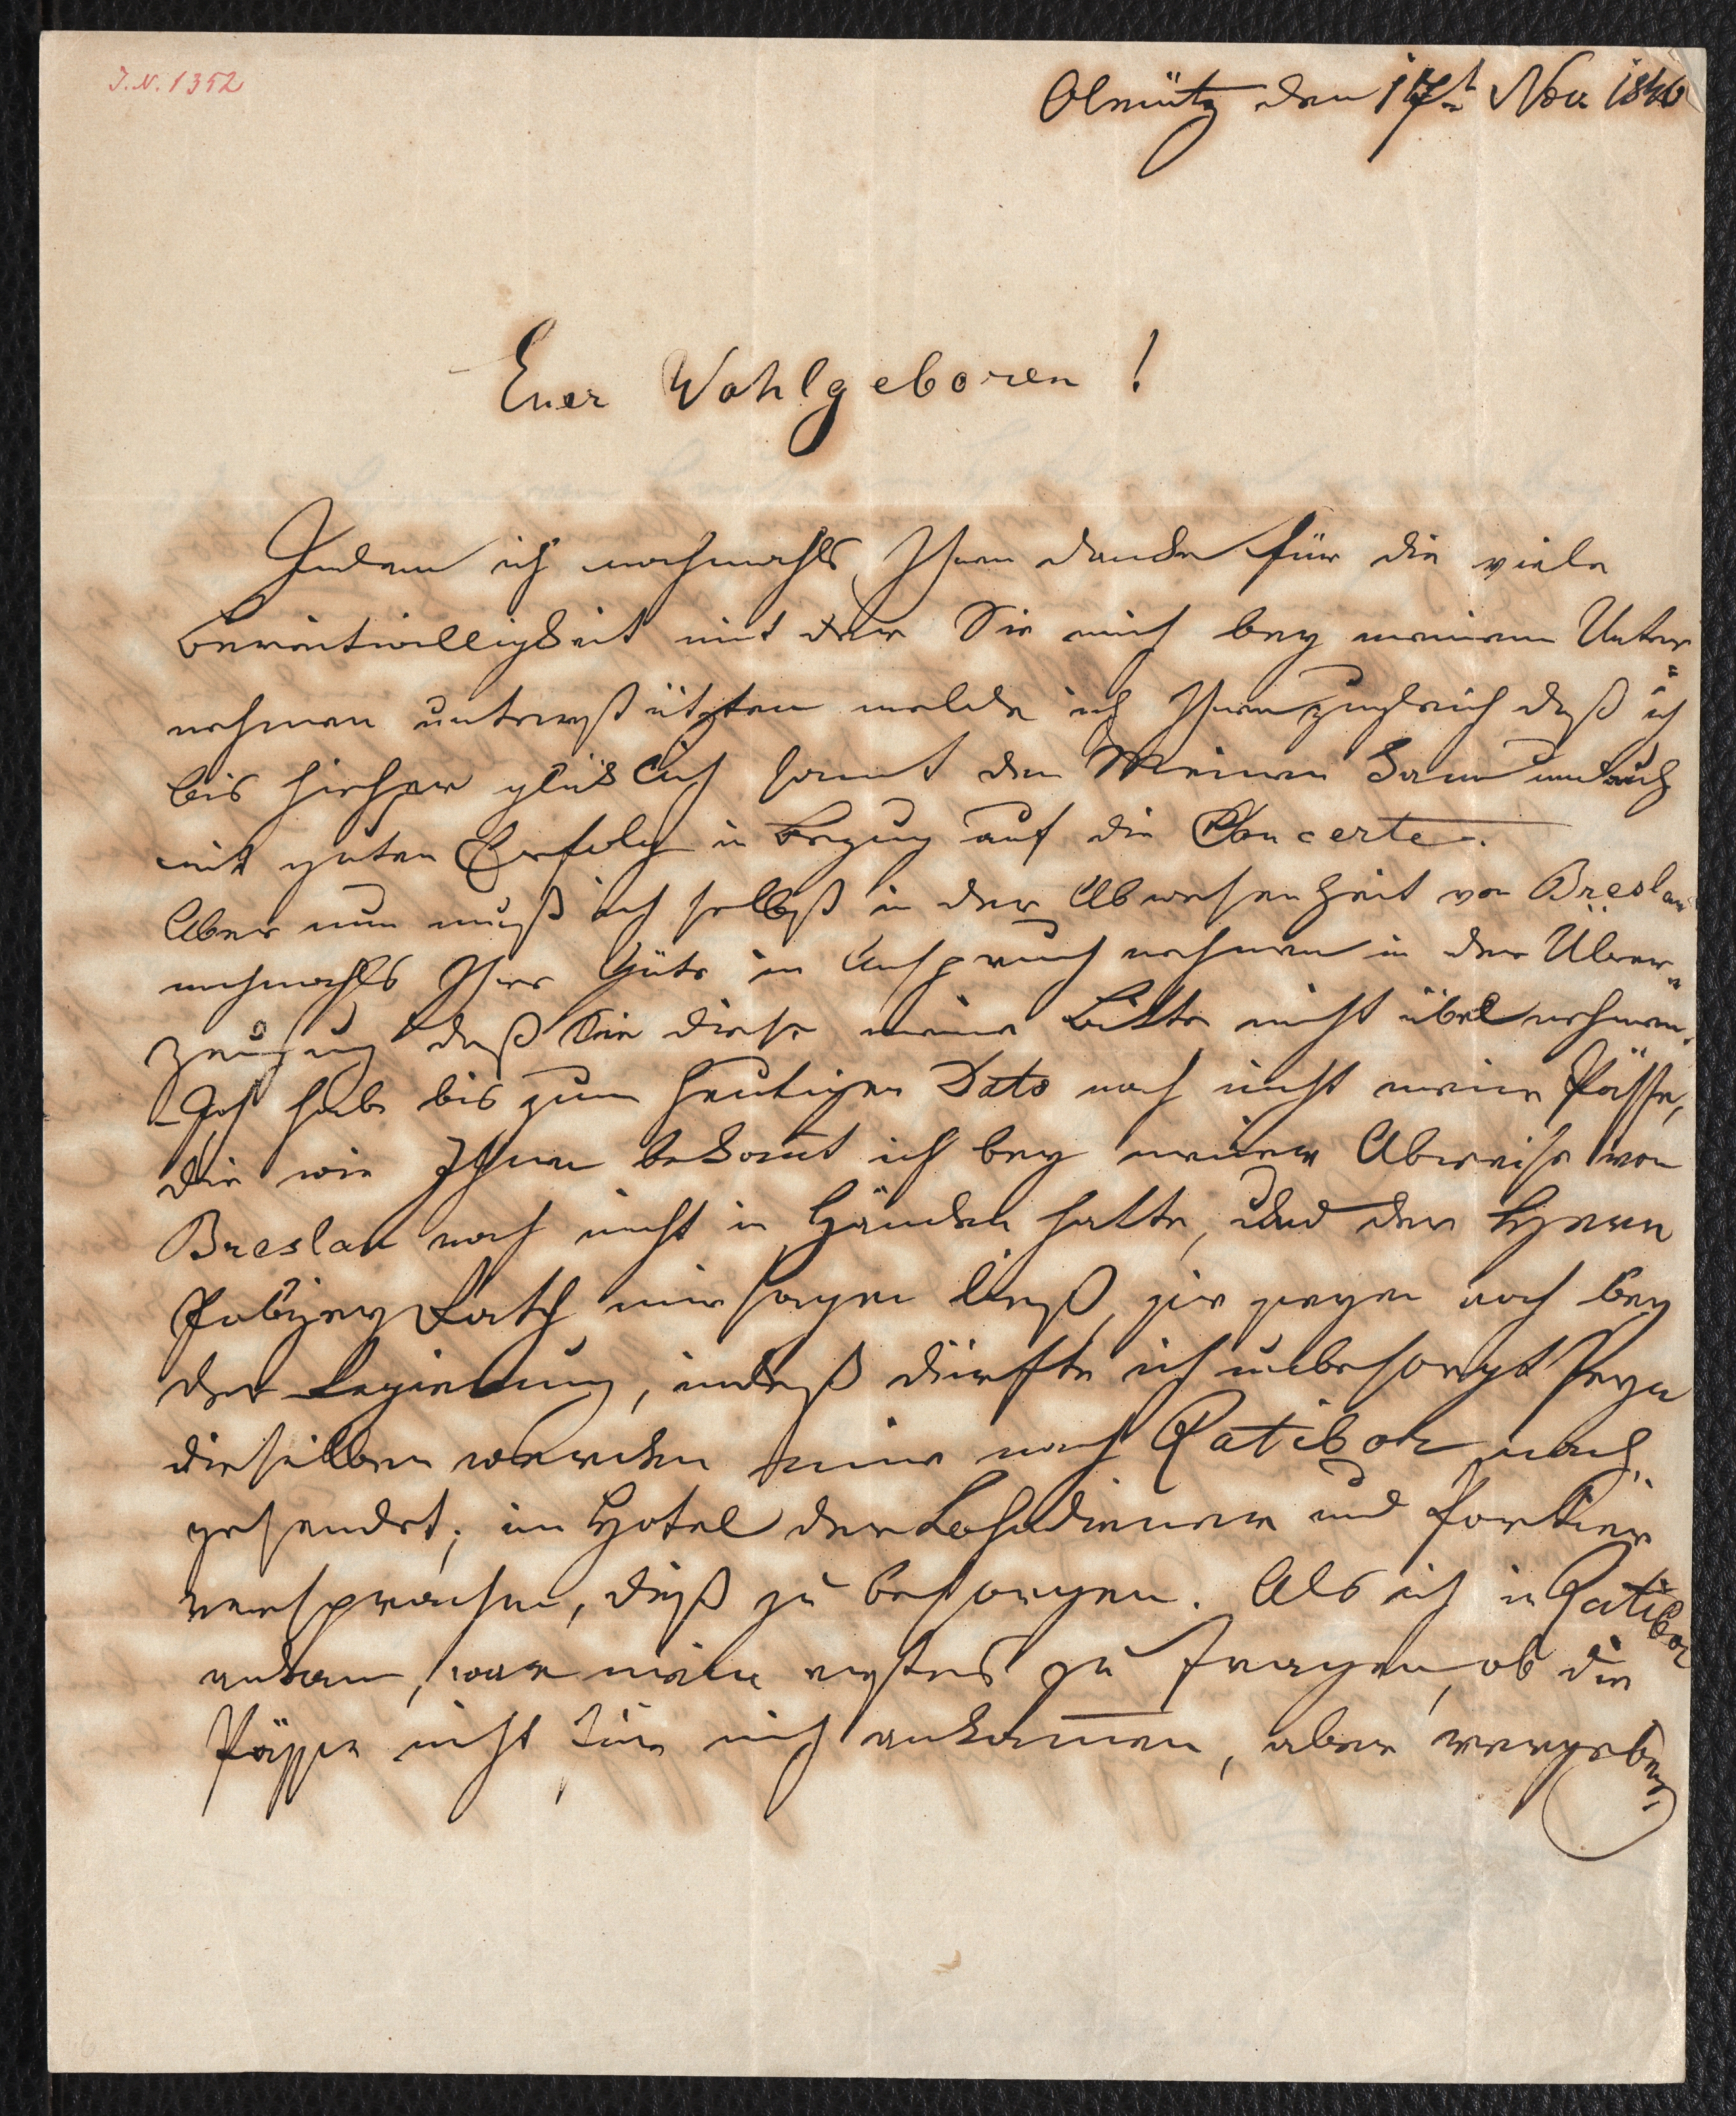 J.N. 1352
Olmütz den 17t Nov 1846
Euer Wohlgeboren !
Indem ich nochmahls Ihnen danke für die viele
Bereitwilligkeit mit der Sie mich bey meinem Unter=
nehmen unterstützten melde ich Ihnen zugleich daß ich
bis hieher glücklich samt den Meinen kam und auch
mit guten Erfolg in Bezug auf die Concerte.
Aber nun muß ich selbst in der Abwesenheit von Breslau
nochmahls Ihre Güte in Anspruch nehmen in der Über=
zeugung daß Sie diese meine Bitte nicht übel nehmen.
Ich habe bis zum heutigen Dato noch nicht meine Pässe,
die wie Ihnen bekannt ich bey meiner Abreise von
Breslau noch nicht in Händen hatte, und der Herr
Polizey Rath mir sagen ließ, sie seyen noch bey
der Regierung, indeß dürfte ich unbesorgt seyn
dieselben werden mir nach Ratibor nach
gesendet; im Hotel der Lohndiener und Portier
versprachen, dieß zu besorgen. Als ich in Ratibor
ankam, war mein erstes zu fragen, ob die
Pässe nicht für mich ankamen, aber vergebens,